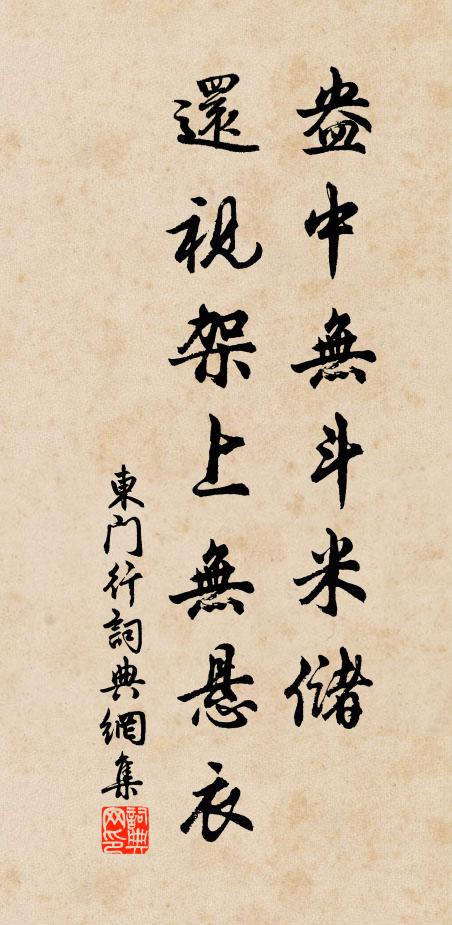 盎中無斗米儲
還視架上無悬衣
東門行詞典網集
詞典网印